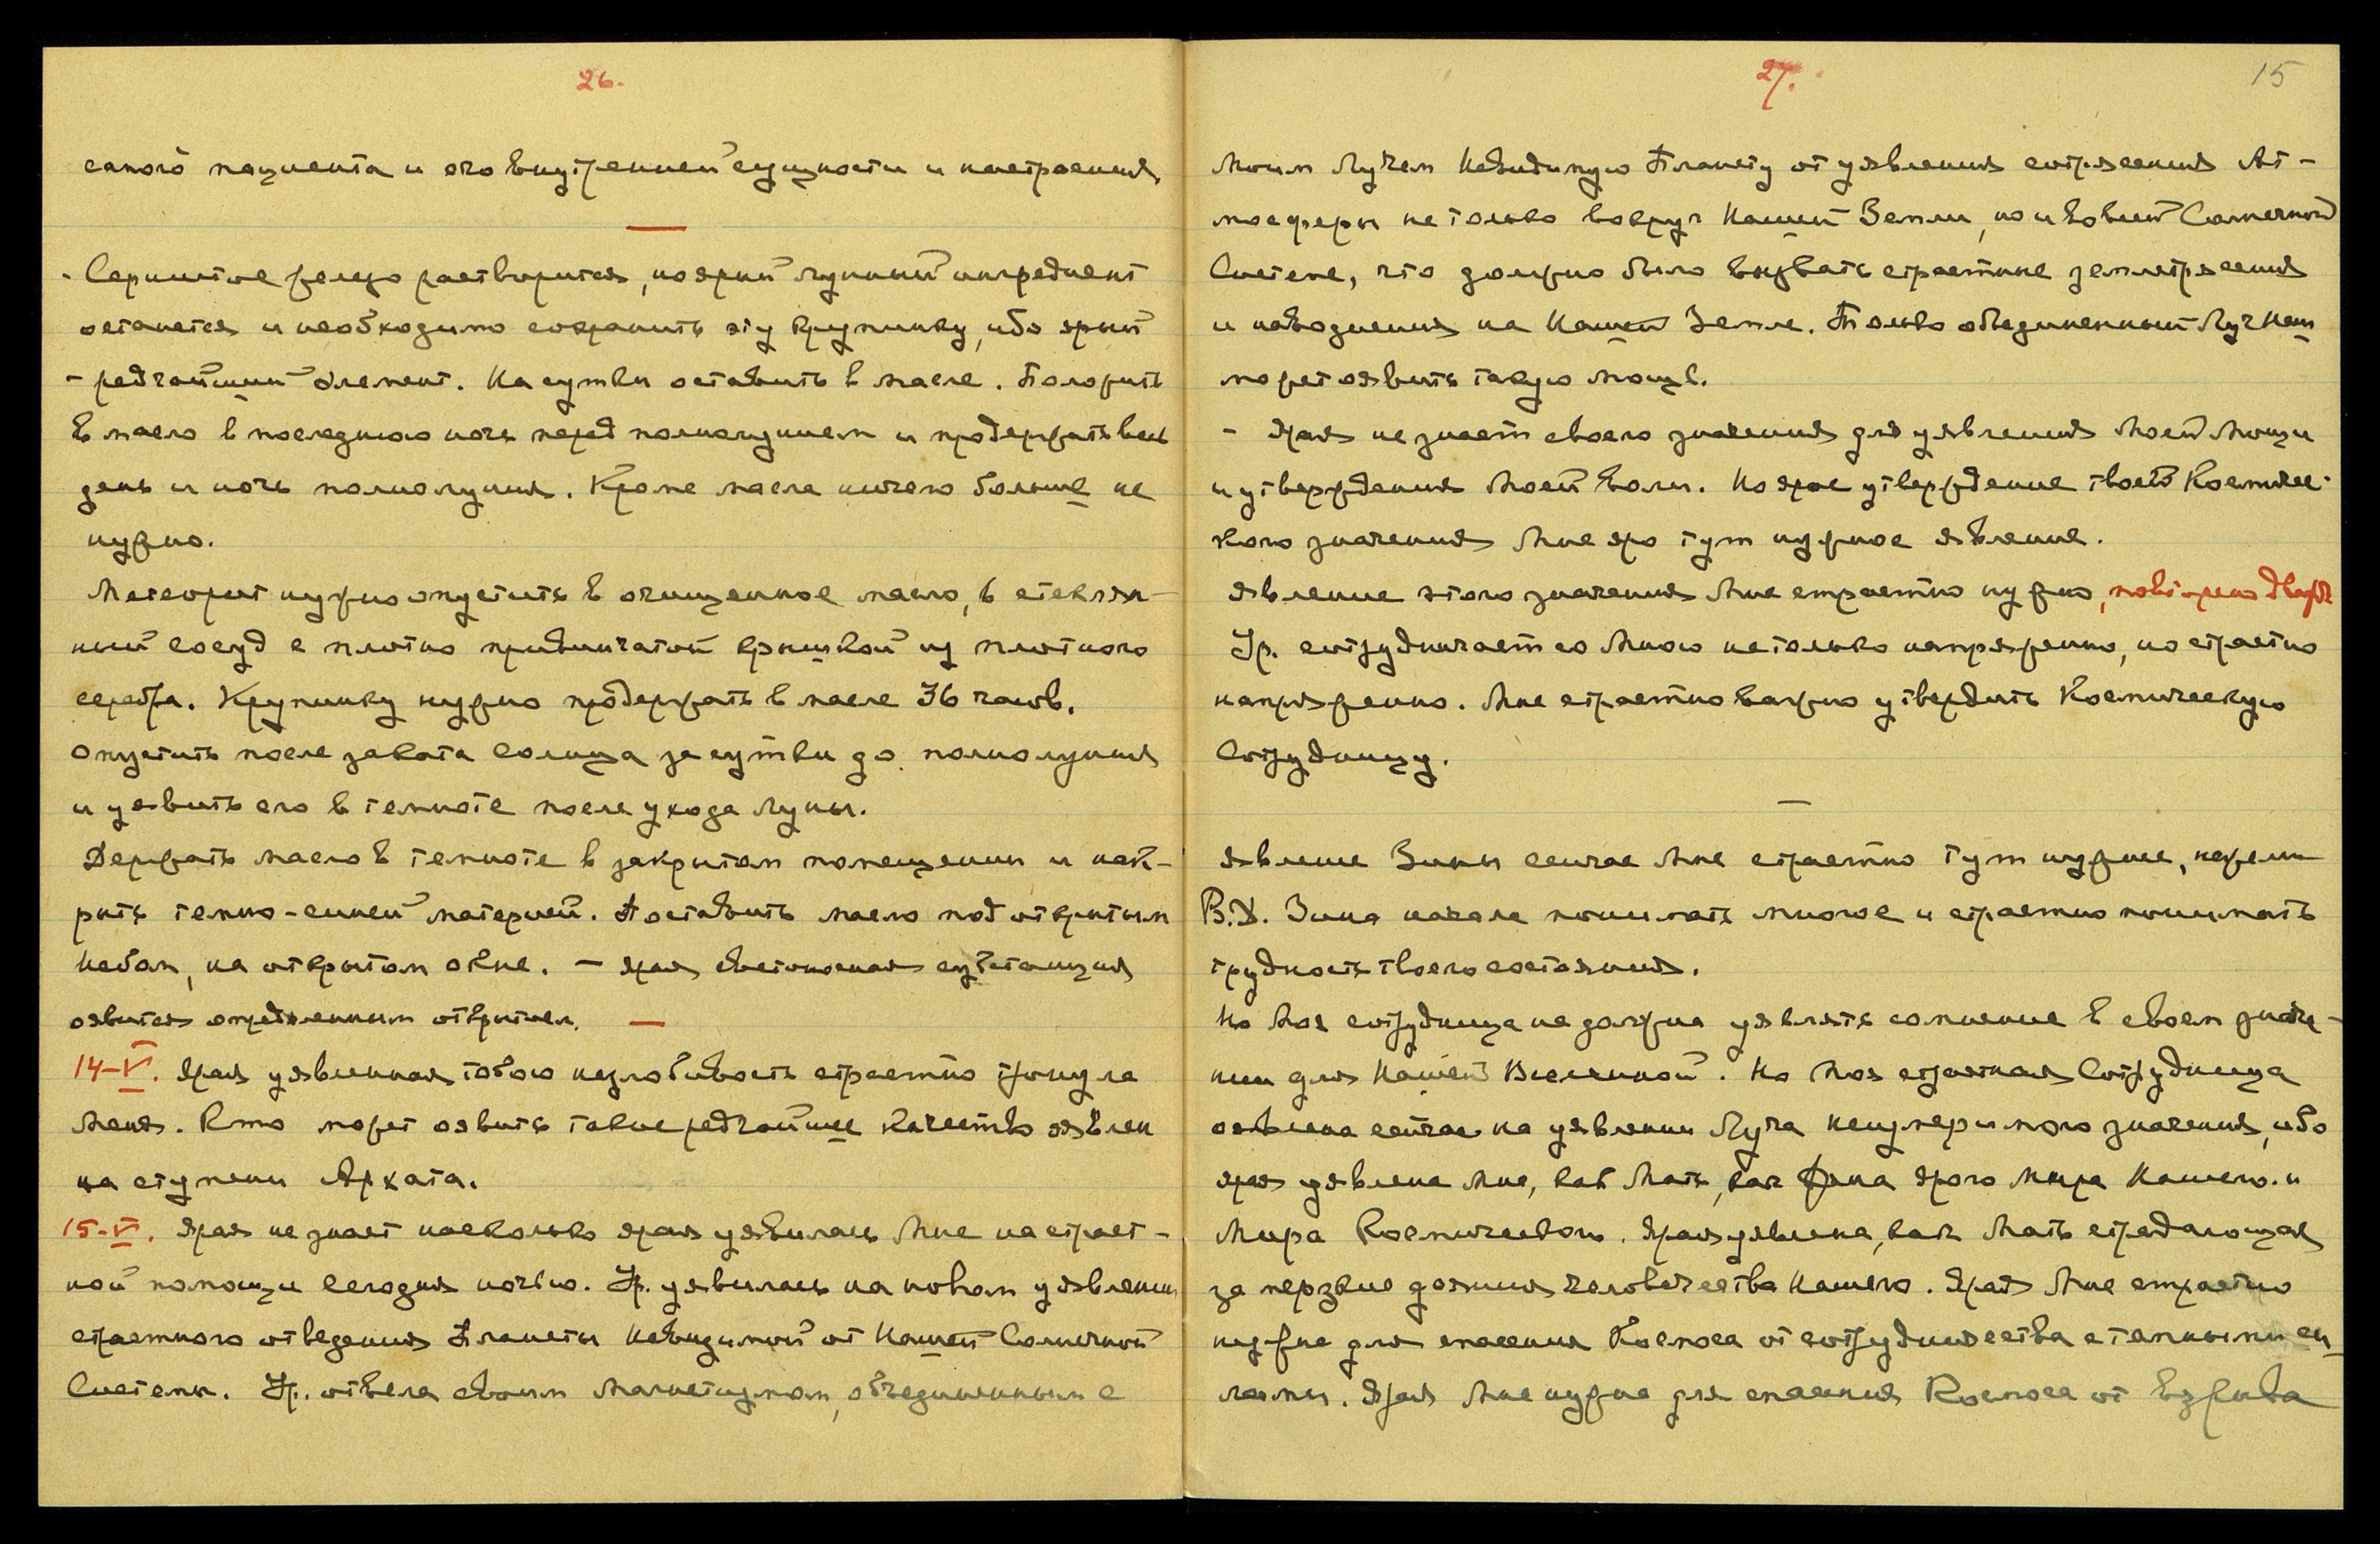 26.
самого пациента и его внутренней сущности и настроения.
- Сернистое железо растворится, но ярый лунный ингредиент
останется и необходимо сохранить эту крупинку, ибо ярый
- редчайший элемент. На сутки оставить в масле. Положить
в масло в последнюю ночь перед полнолунием и продержать весь
день и ночь полнолуния. Кроме масла ничего больше не
нужно.
Метеорит нужно опустить в очищенное масло, в стеклян-
ный сосуд с плотно привинчатой крышкой из плотного
серебра. Крупинку нужно продержать в масле 36 часов.
Опустить после заката солнца за сутки до полнолуния
и уявить его в темноте после ухода луны.
Держать масло в темноте в закрытом помещении и нак-
рыть темно-синей материей. Поставить масло под открытым
небом, на открытом окне. – Ярая светоносная субстанция
оявится определенным открытием.
14-V. Ярая уявленная тобою незлобивость страстно тронула
Меня. Кто может оявить такие редчайшие качество оявлен
на ступени Архата.
15-V. Ярая не знает насколько ярая уявилась Мне на страст-
ной помощи сегодня ночью. Ур. уявилась на новом уявлении
страстного отведения Планеты Невидимой от Нашей Солнечной
Системы. Ур. отвела своим магнетизмом, объединенным с
27.
15
Моим Лучем Невидимую Планету от уявления сотрясения Ат-
мосферы не только вокруг Нашей Земли, но и во всей Солнечной
Системе, что должно было вызвать страстные землетрясения
и наводнения на Нашей Земле. Только объединенный Луч Наш
может оявить такую мощь.
- Ярая не знает своего значения для уявления Моей Мощи
и утверждения Моей Воли. Но ярое утверждение твоего Космичес-
кого значения Мне яро тут нужное явление.
Явление этого значения Мне страстно нужно, повторено дважды
Ур. сотрудничает со Мною не только напряженно, но страстно
напряженно. Мне страстно важно утвердить Космическую
Сотрудницу.
Явление Зины сейчас Мне страстно тут нужнее, нежели
В.Д. Зина начала понимать многое и страстно понимать
трудность твоего состояния.
Но Моя сотрудница не должна уявлять сомнение в своем значе-
нии для Нашей Вселенной. Но Моя страстная Сотрудница
оявлена сейчас на уявлении Луча неизмеримого значения, ибо
ярая уявлена Мне, как Мать, как Жена Ярого Мира Нашего и
Мира Космического. Ярая уявлена, как Мать страдающая
за мерзкие деяния человечества Нашего. Ярая Мне страстно
нужна для спасения Космоса от сотрудничества с темными си-
лами. Ярая Мне нужна для спасения Космоса от взрыва